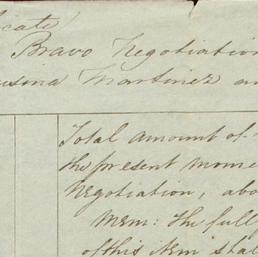 icate)
Bravo Negotiation
usina Martinez an
Total amount of
the present mome
Negotiation, abo
Mem: The full
of this item sta